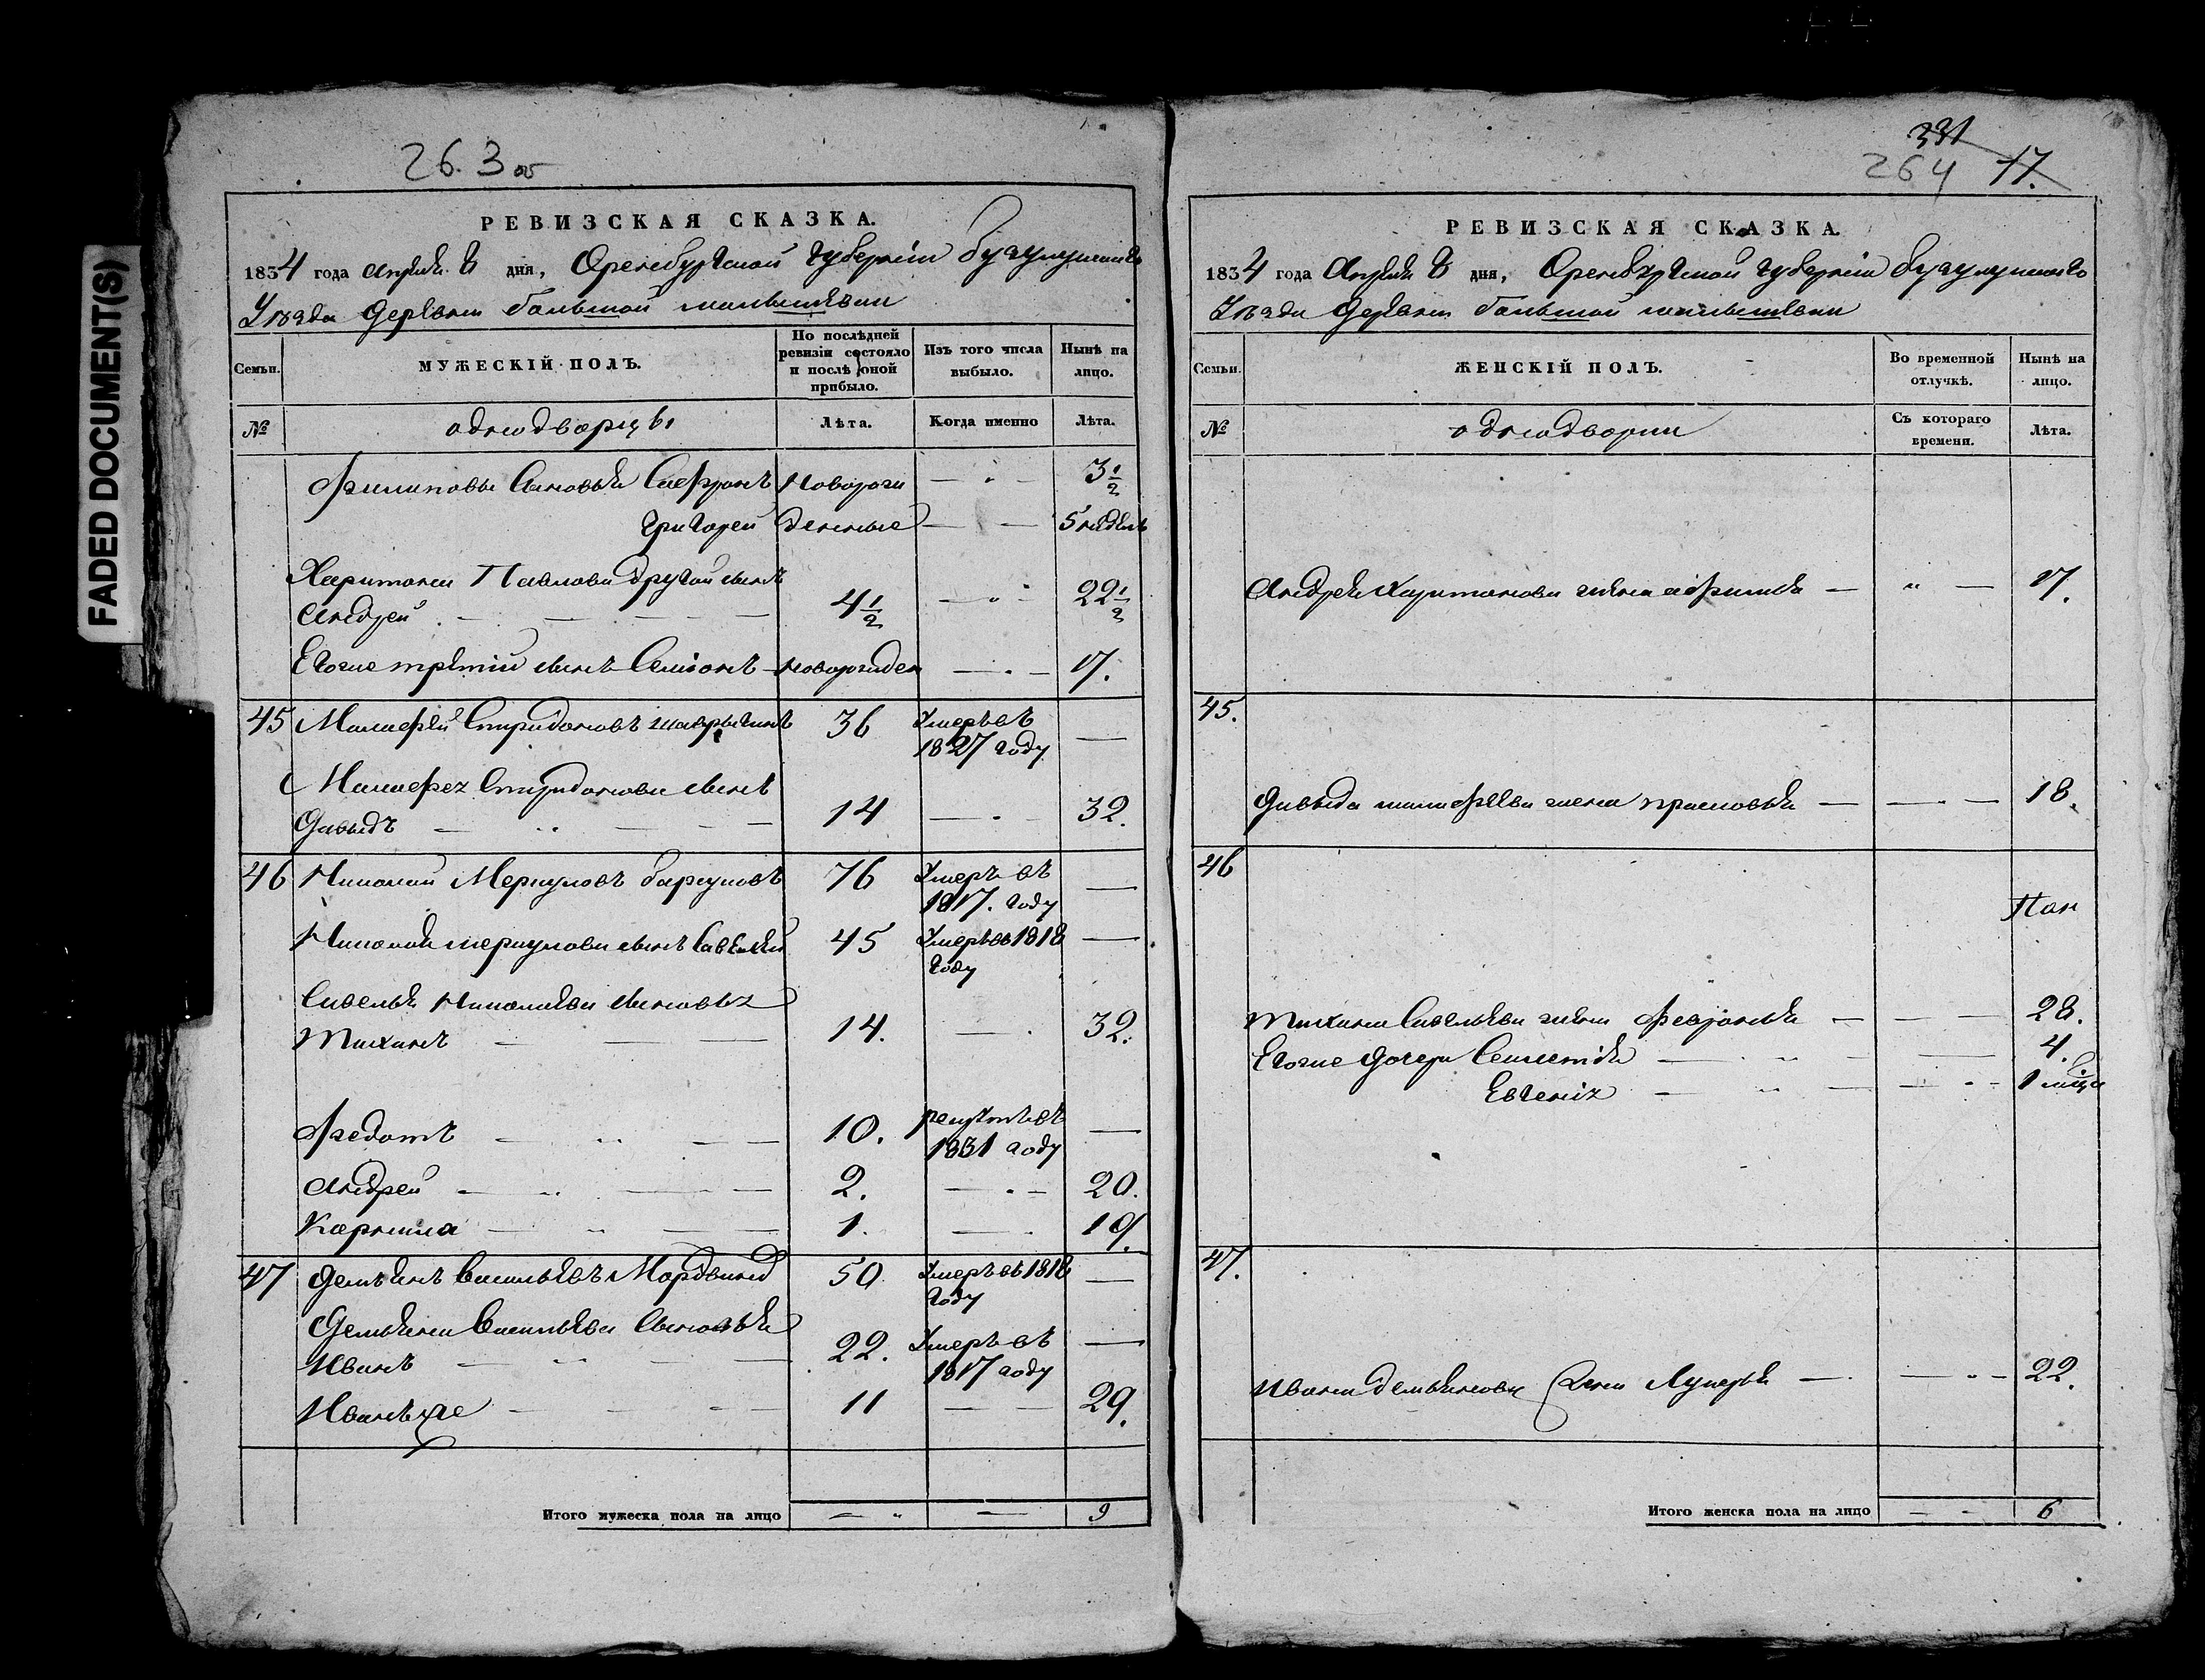 FADED DOCUMENT(S)
263 об
РЕВИЗСКАЯ СКАЗКА.
1834 года апреля 8 дня, Оренбургской губернии бугурусланского
Уезда деревни большой
Семьи.
МУЖЕСКІЙ ПОЛЪ.
По послѣдней ревизіи состояло и послѣ оной прибыло.
Изъ того числа выбыло.
Нынѣ на лицо.
№
однодворцы
Лѣта.
Когда именно
Лѣта.
Филиповы сыновья Сафронъ новорож — 3 1/2
григорей денные — 5 недель
Харитона Павлова другой сынъ
андрей 4 1/2 — 22 1/2
Егоже третий сынъ Семионъ новорожден — 17.
45 Малафей Спиридоновъ 36 Умеръ въ —
1827 году
Малафея Спиридонова сынъ
давыдъ — 14 — 32.
46 Николай Меркуловъ 76 Умеръ въ —
1817. году
Николая меркулова сынъ Савелей 45 Умеръ въ 1818 —
году
Савелья Николаева сыновья
Тихонъ — 14. — 32.
Федотъ — 10. рекрутъ въ —
1831 году
андрей — 2. — 20.
Корнила — 1. — 19.
47 демьянъ васильевъ Мордвин 50 Умеръ въ 1818 —
году
демьяна васильева сыновья
Иванъ — 22. Умеръ въ —
1817 году
Иванъ же — 11 — 29.
Итого мужеска пола на лицо — — 9
331
264 17.
РЕВИЗСКАЯ СКАЗКА.
1834 года Апреля 8 дня, Оренбургской губернии бугурусланского
Уезда деревни большой
Семьи.
ЖЕНСКІЙ ПОЛЪ.
Во временной отлучкѣ.
Нынѣ на лицо.
№
однодворки
Съ котораго времени.
Лѣта.
андрея Харитонова жена афимья — „ — 17.
45.
давыда малафеева жена прасковья — — 18.
46
Тихона Савельева жена февронья — — 28.
Егоже дочери — — 4.
Евгения — — 1 м̃ца
47.
Ивана демьянова жена Лукерья — — 22.
Итого женска пола на лицо — 6